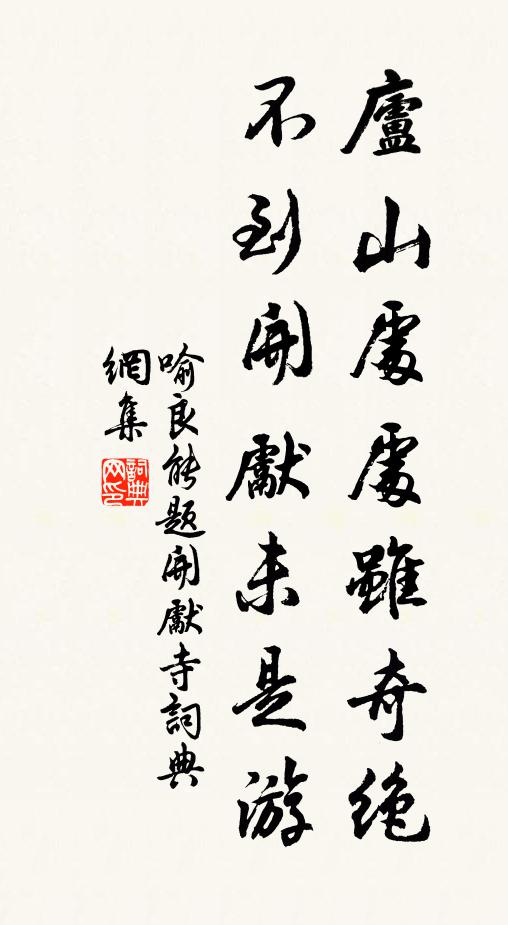 廬山處處雖奇絕
不到開獻未是游
喻良能题開獻寺詞典
網集
詞典
网印